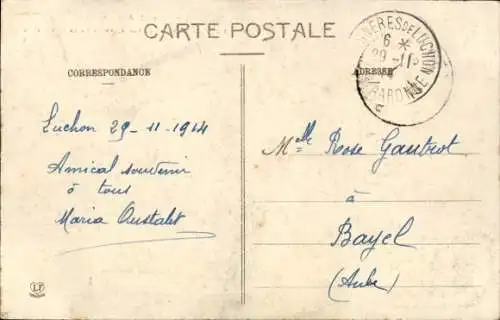 CARTE POSTALE
CORRESPONDANCE
ADRESSE
BAGNERES DE LUCHON
6 *
29 -11
GARONNE
Luchon 29-11-1914
Amical souvenir
à tous
Maria Oustalet
Melle Rose Gautrot
à
Bayel
(Aube)